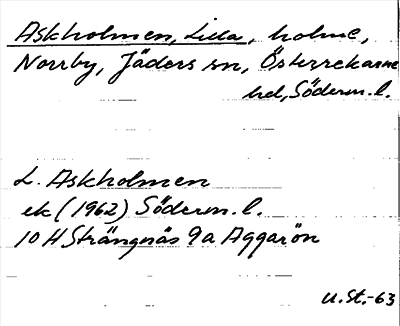 Askholmen, Lilla, holme,
Norrby, Jäders sn, Österrekarne
hd, Söderm. l.
L. Askholmen
ek (1962) Söderm. l.
10 H Strängnäs 9a Aggarön
U.St.-63